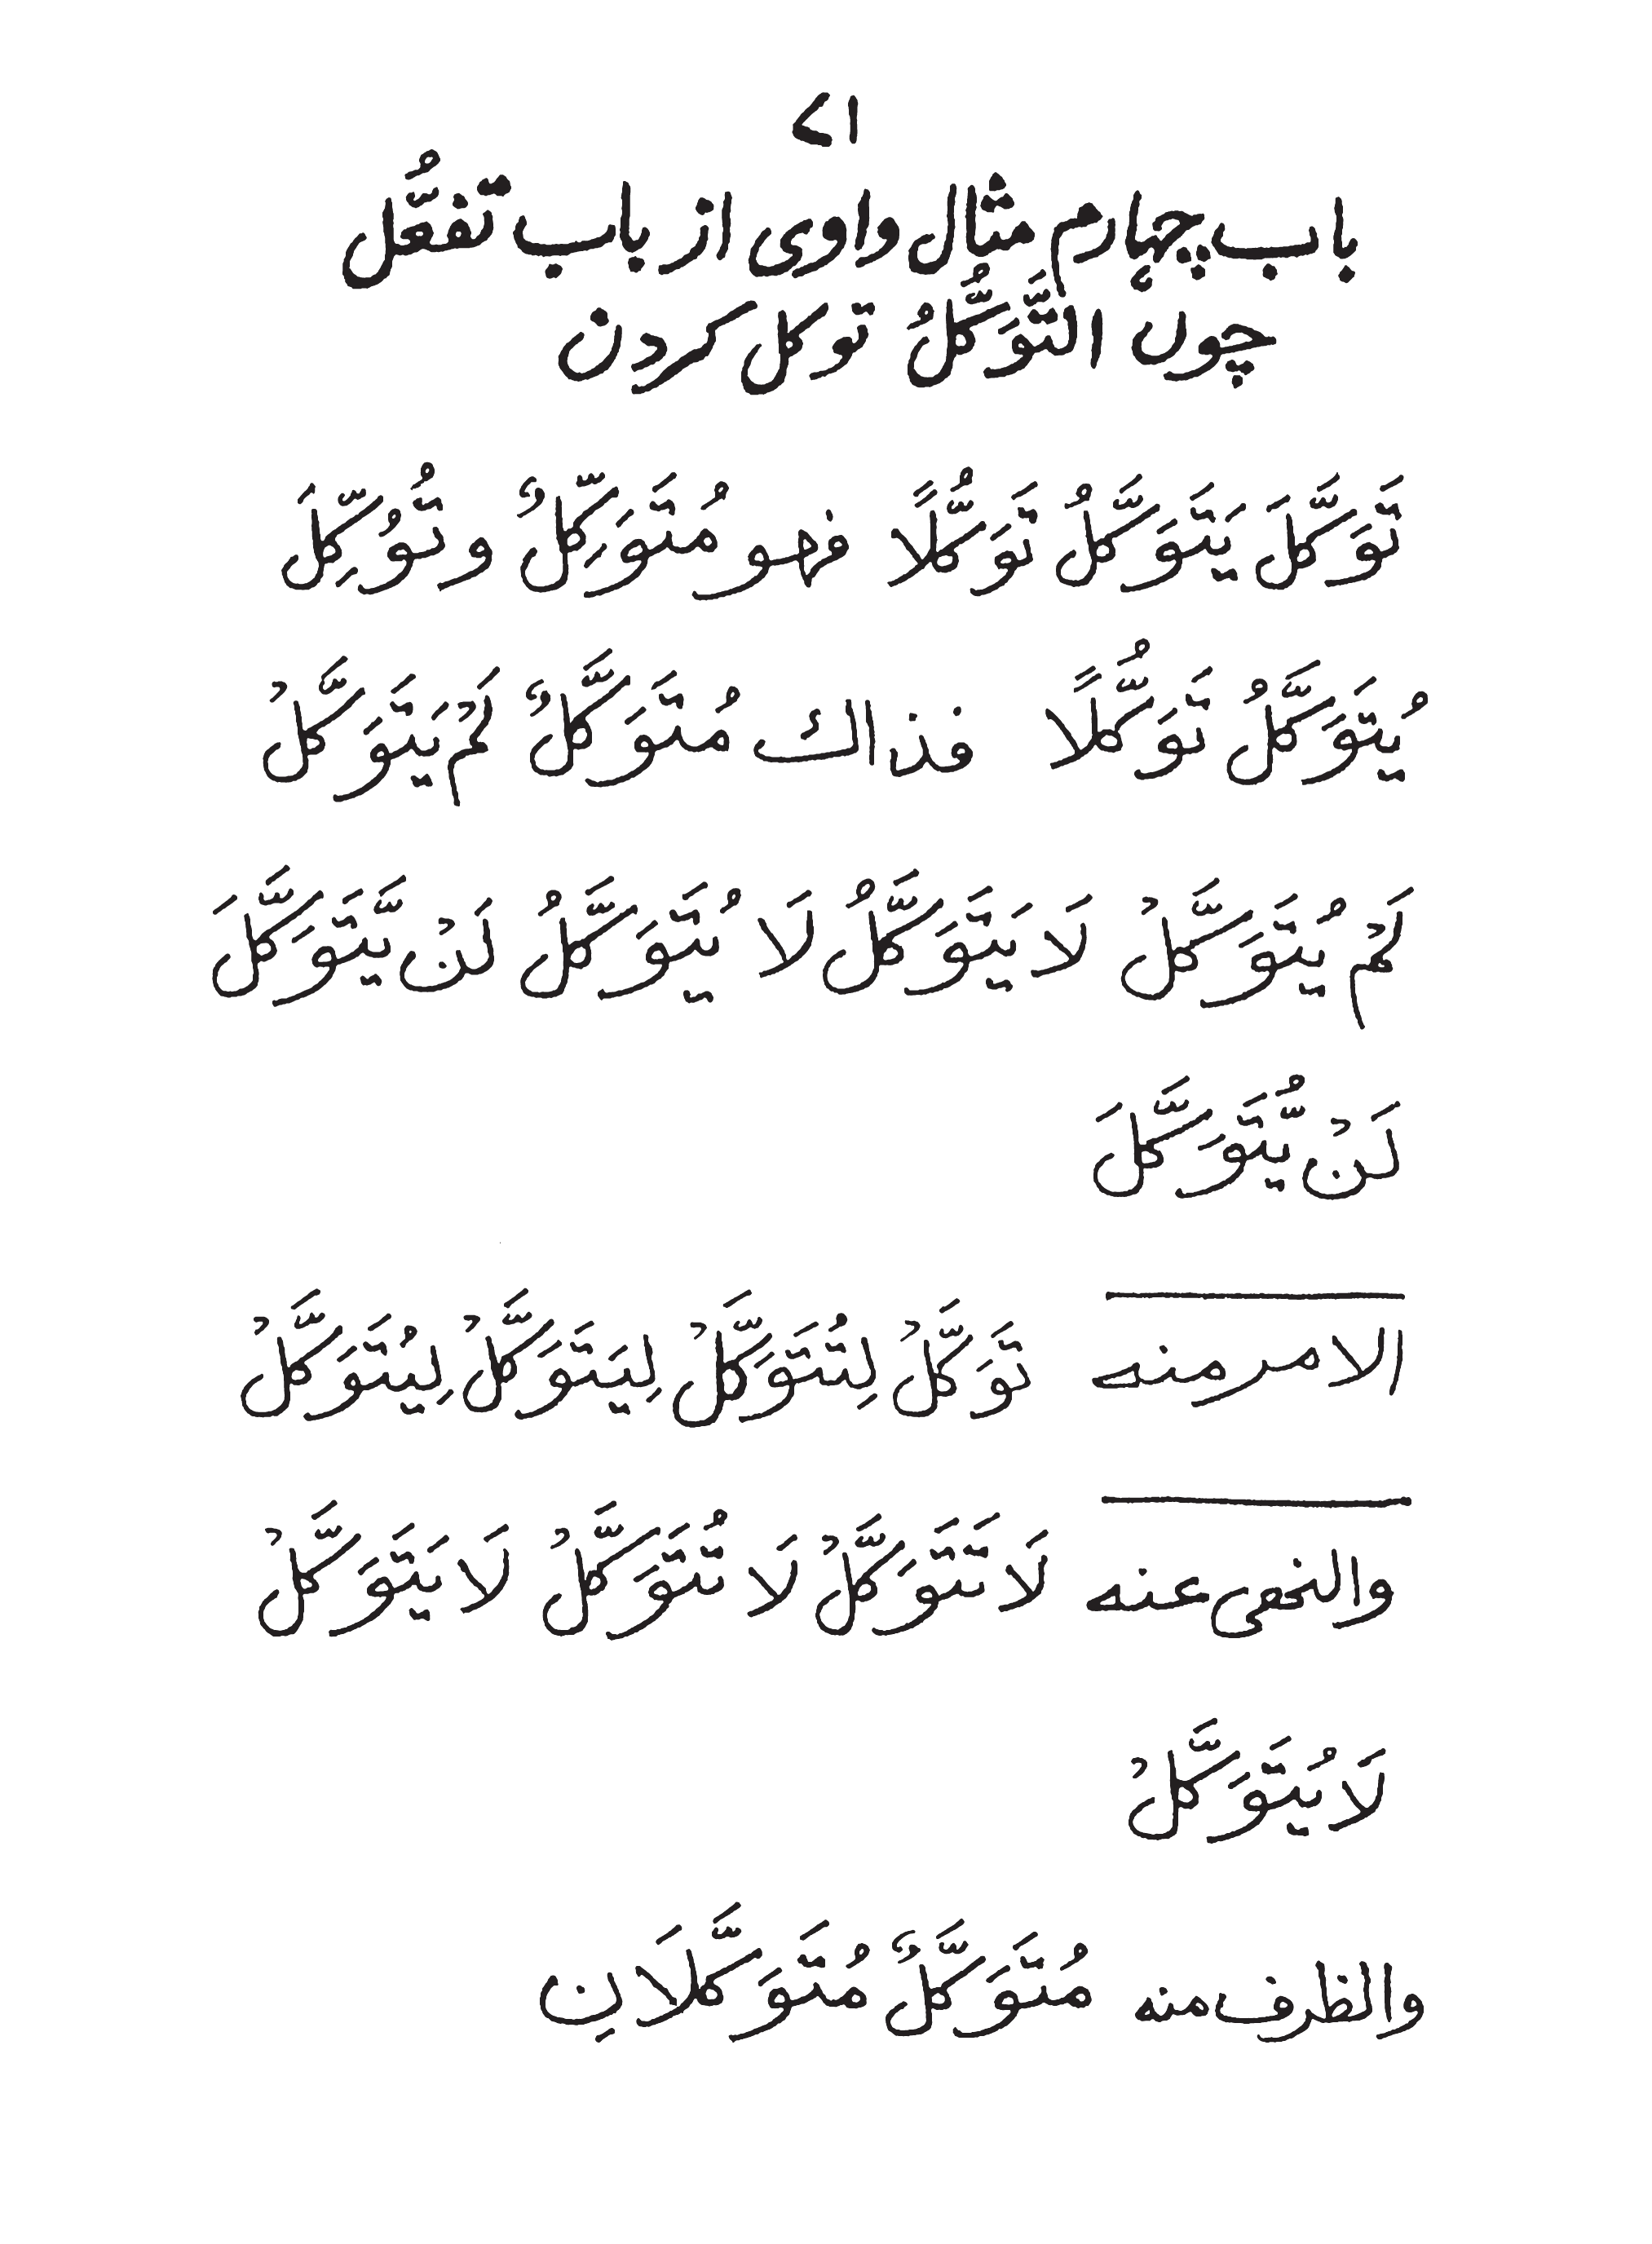 ۷۱
باب چہارم مثال واوی از باب تفعُّل
چوں التَّوَكُّلُ توکل کردن
تَوَكَّلَ يَتَوَكَّلُ تَوَكُّلًا فهو مُتَوَكِّلٌ و تُوُكِّلَ
يُتَوَكَّلُ تَوَكُّلًا فذاك مُتَوَكَّلٌ لَمْ يَتَوَكَّلْ
لَمْ يُتَوَكَّلْ لَا يَتَوَكَّلُ لَا يُتَوَكَّلُ لَنْ يَّتَوَكَّلَ
لَنْ يُّتَوَكَّلَ
الامر منه تَوَكَّلْ لِتُتَوَكَّلْ لِيَتَوَكَّلْ لِيُتَوَكَّلْ
والنهى عنه لَا تَتَوَكَّلْ لَا تُتَوَكَّلْ لَا يَتَوَكَّلْ
لَا يُتَوَكَّلْ
والظرف منه مُتَوَكَّلٌ مُتَوَكَّلَانِ